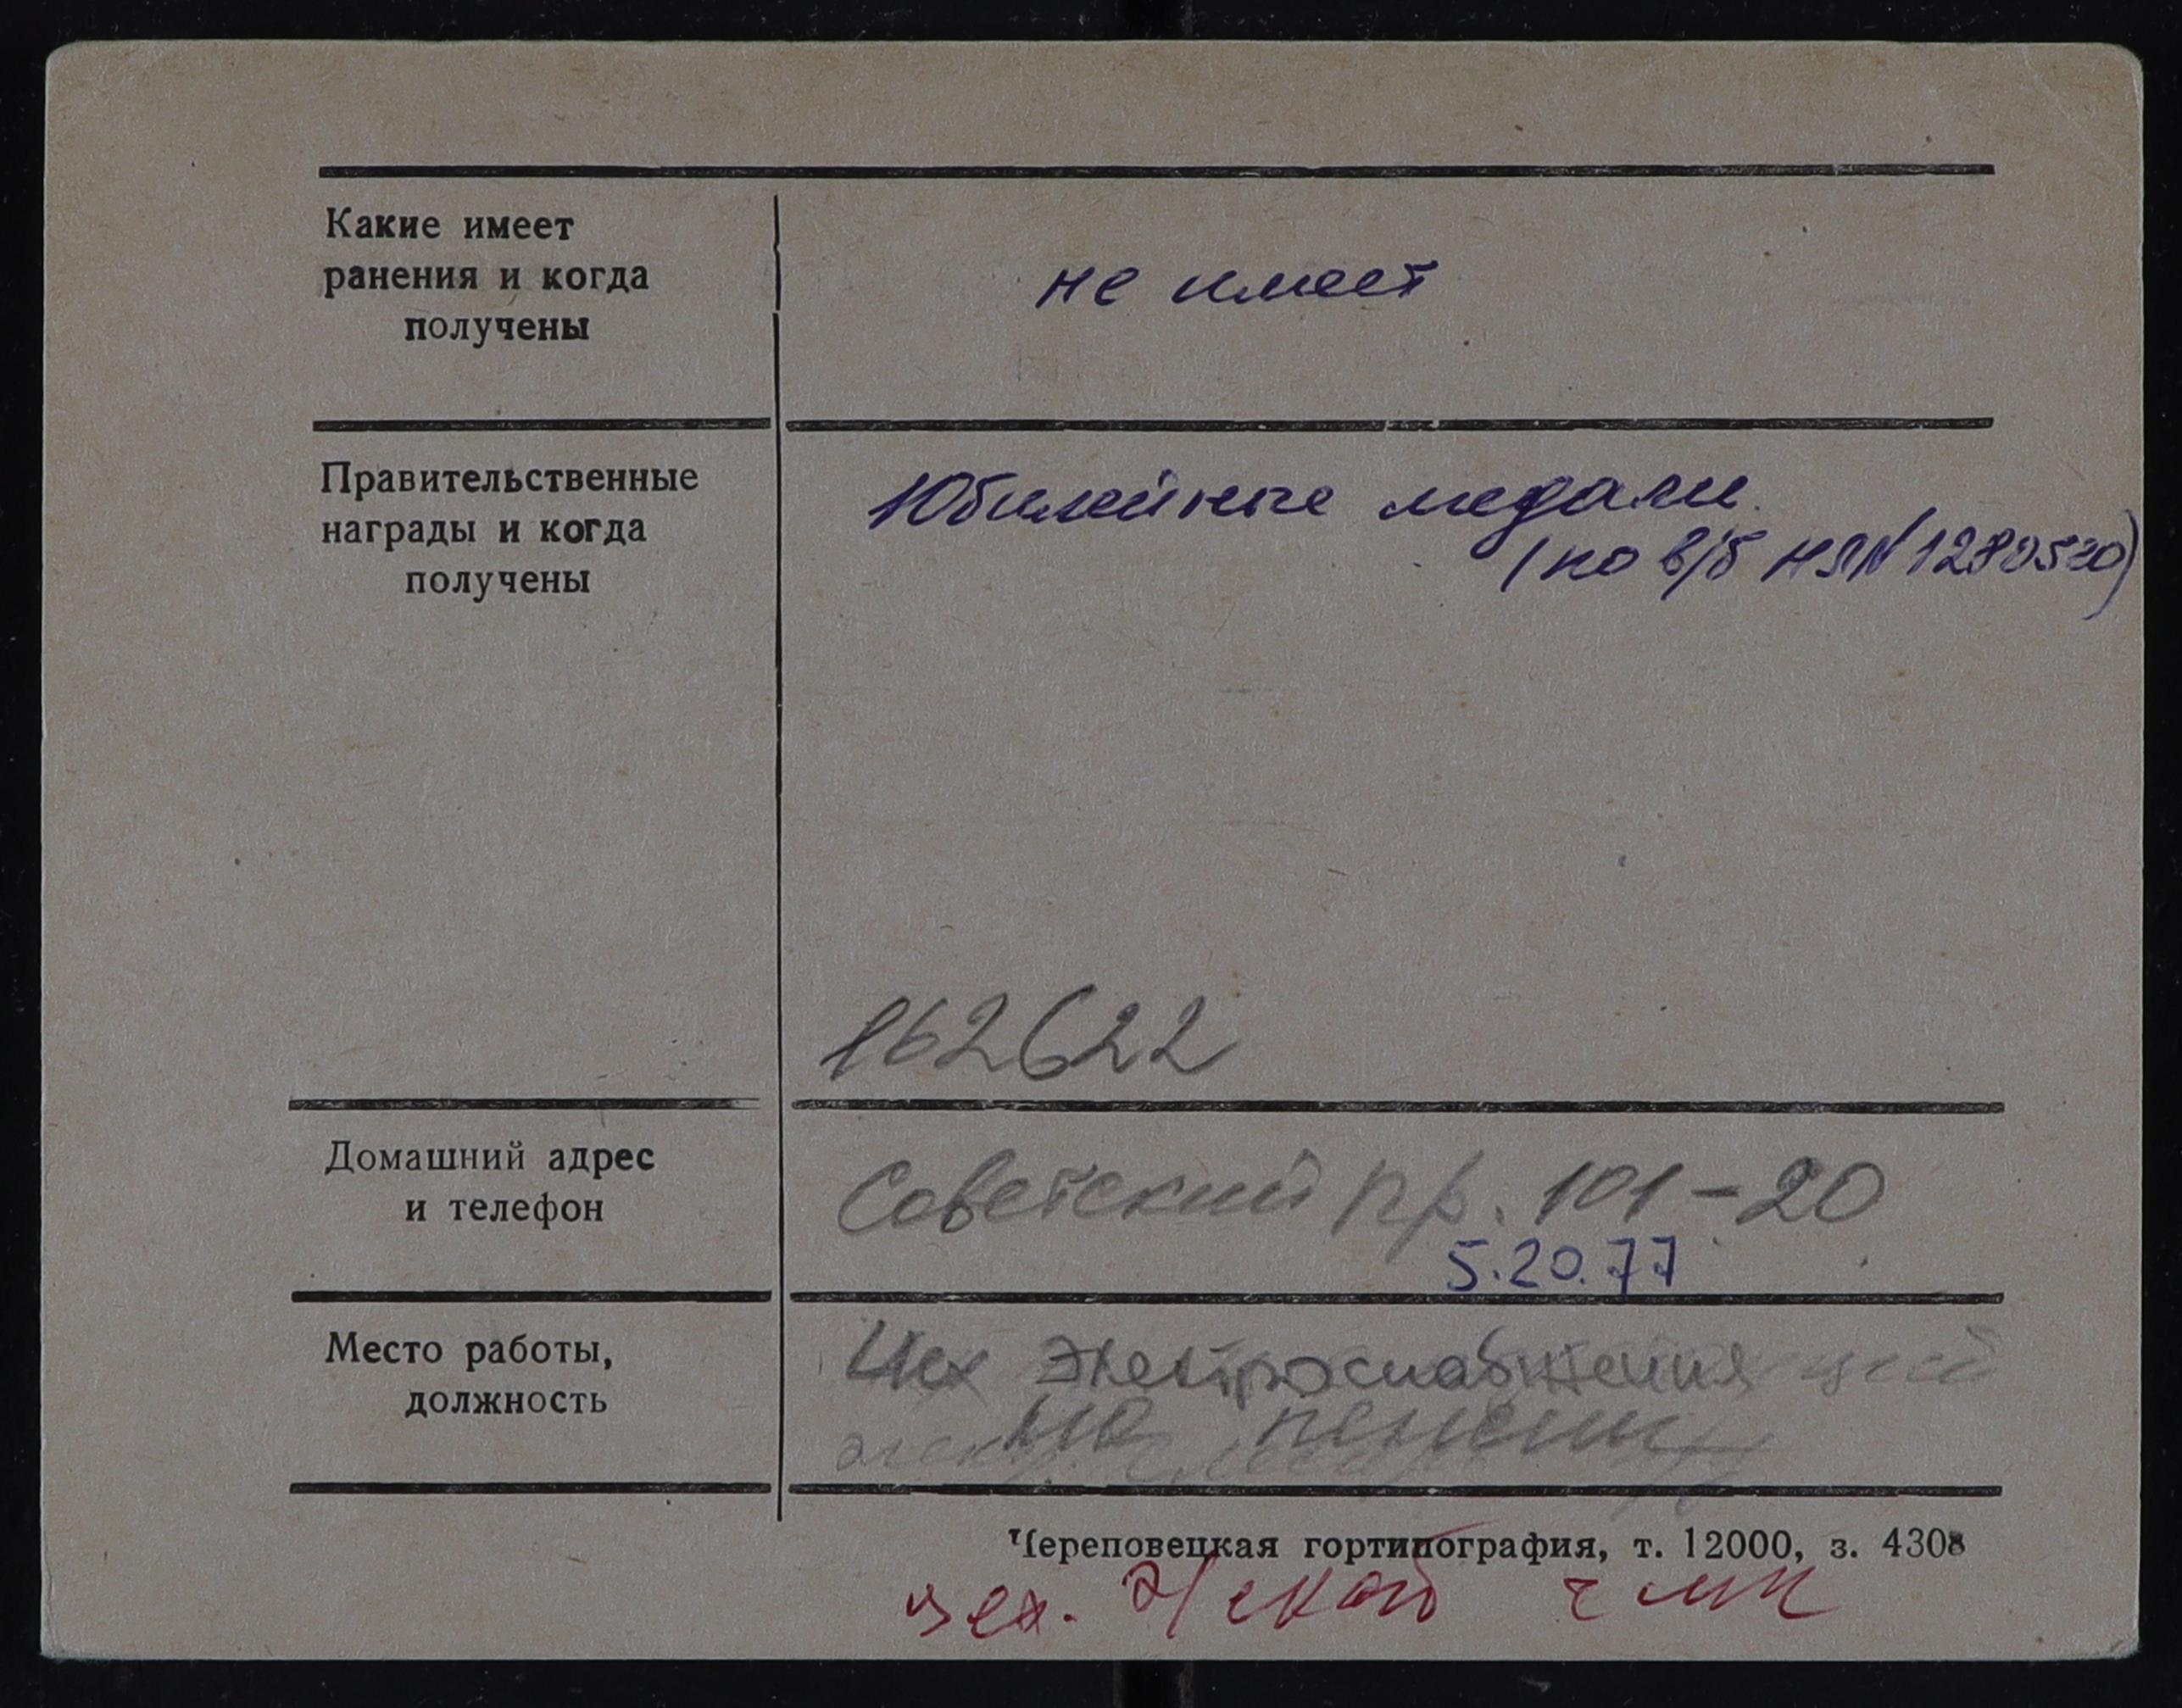 Какие имеет
ранения и когда
получены
не имеет
Правительственные
награды и когда
получены
Юбилейные медали
(по в/б НЯ № 1280520)
162622
Домашний адрес
и телефон
Советский пр. 101-20
5.20.77
Место работы,
должность
Цех электроснабжения
на пенсии
Череповецкая гортипография, т. 12000, з. 4308
цех. э/снаб ЧМК